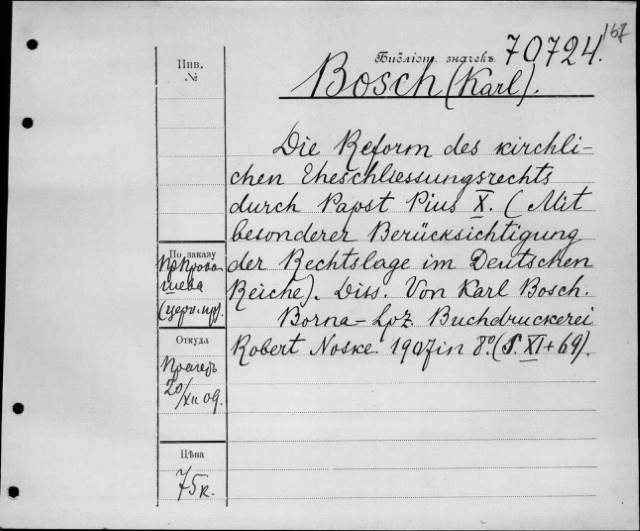 167
Библіот. значекъ 70724.
Bosch (Karl).
Инв.
№
Die Reform des kirchli-
chen Eheschliessungsrechts
durch Papst Pius X. (Mit
besonderer Berücksichtigung
der Rechtslage im Deutschen
Reiche). Diss. Von Karl Bosch.
Borna-Lpz. Buchdruckerei
Robert Noske. 1907 in 8º. (S. XI + 69).
По заказу
(церк. пр).
Откуда
Прагеръ
20/XII 09.
Цѣна
75 к.